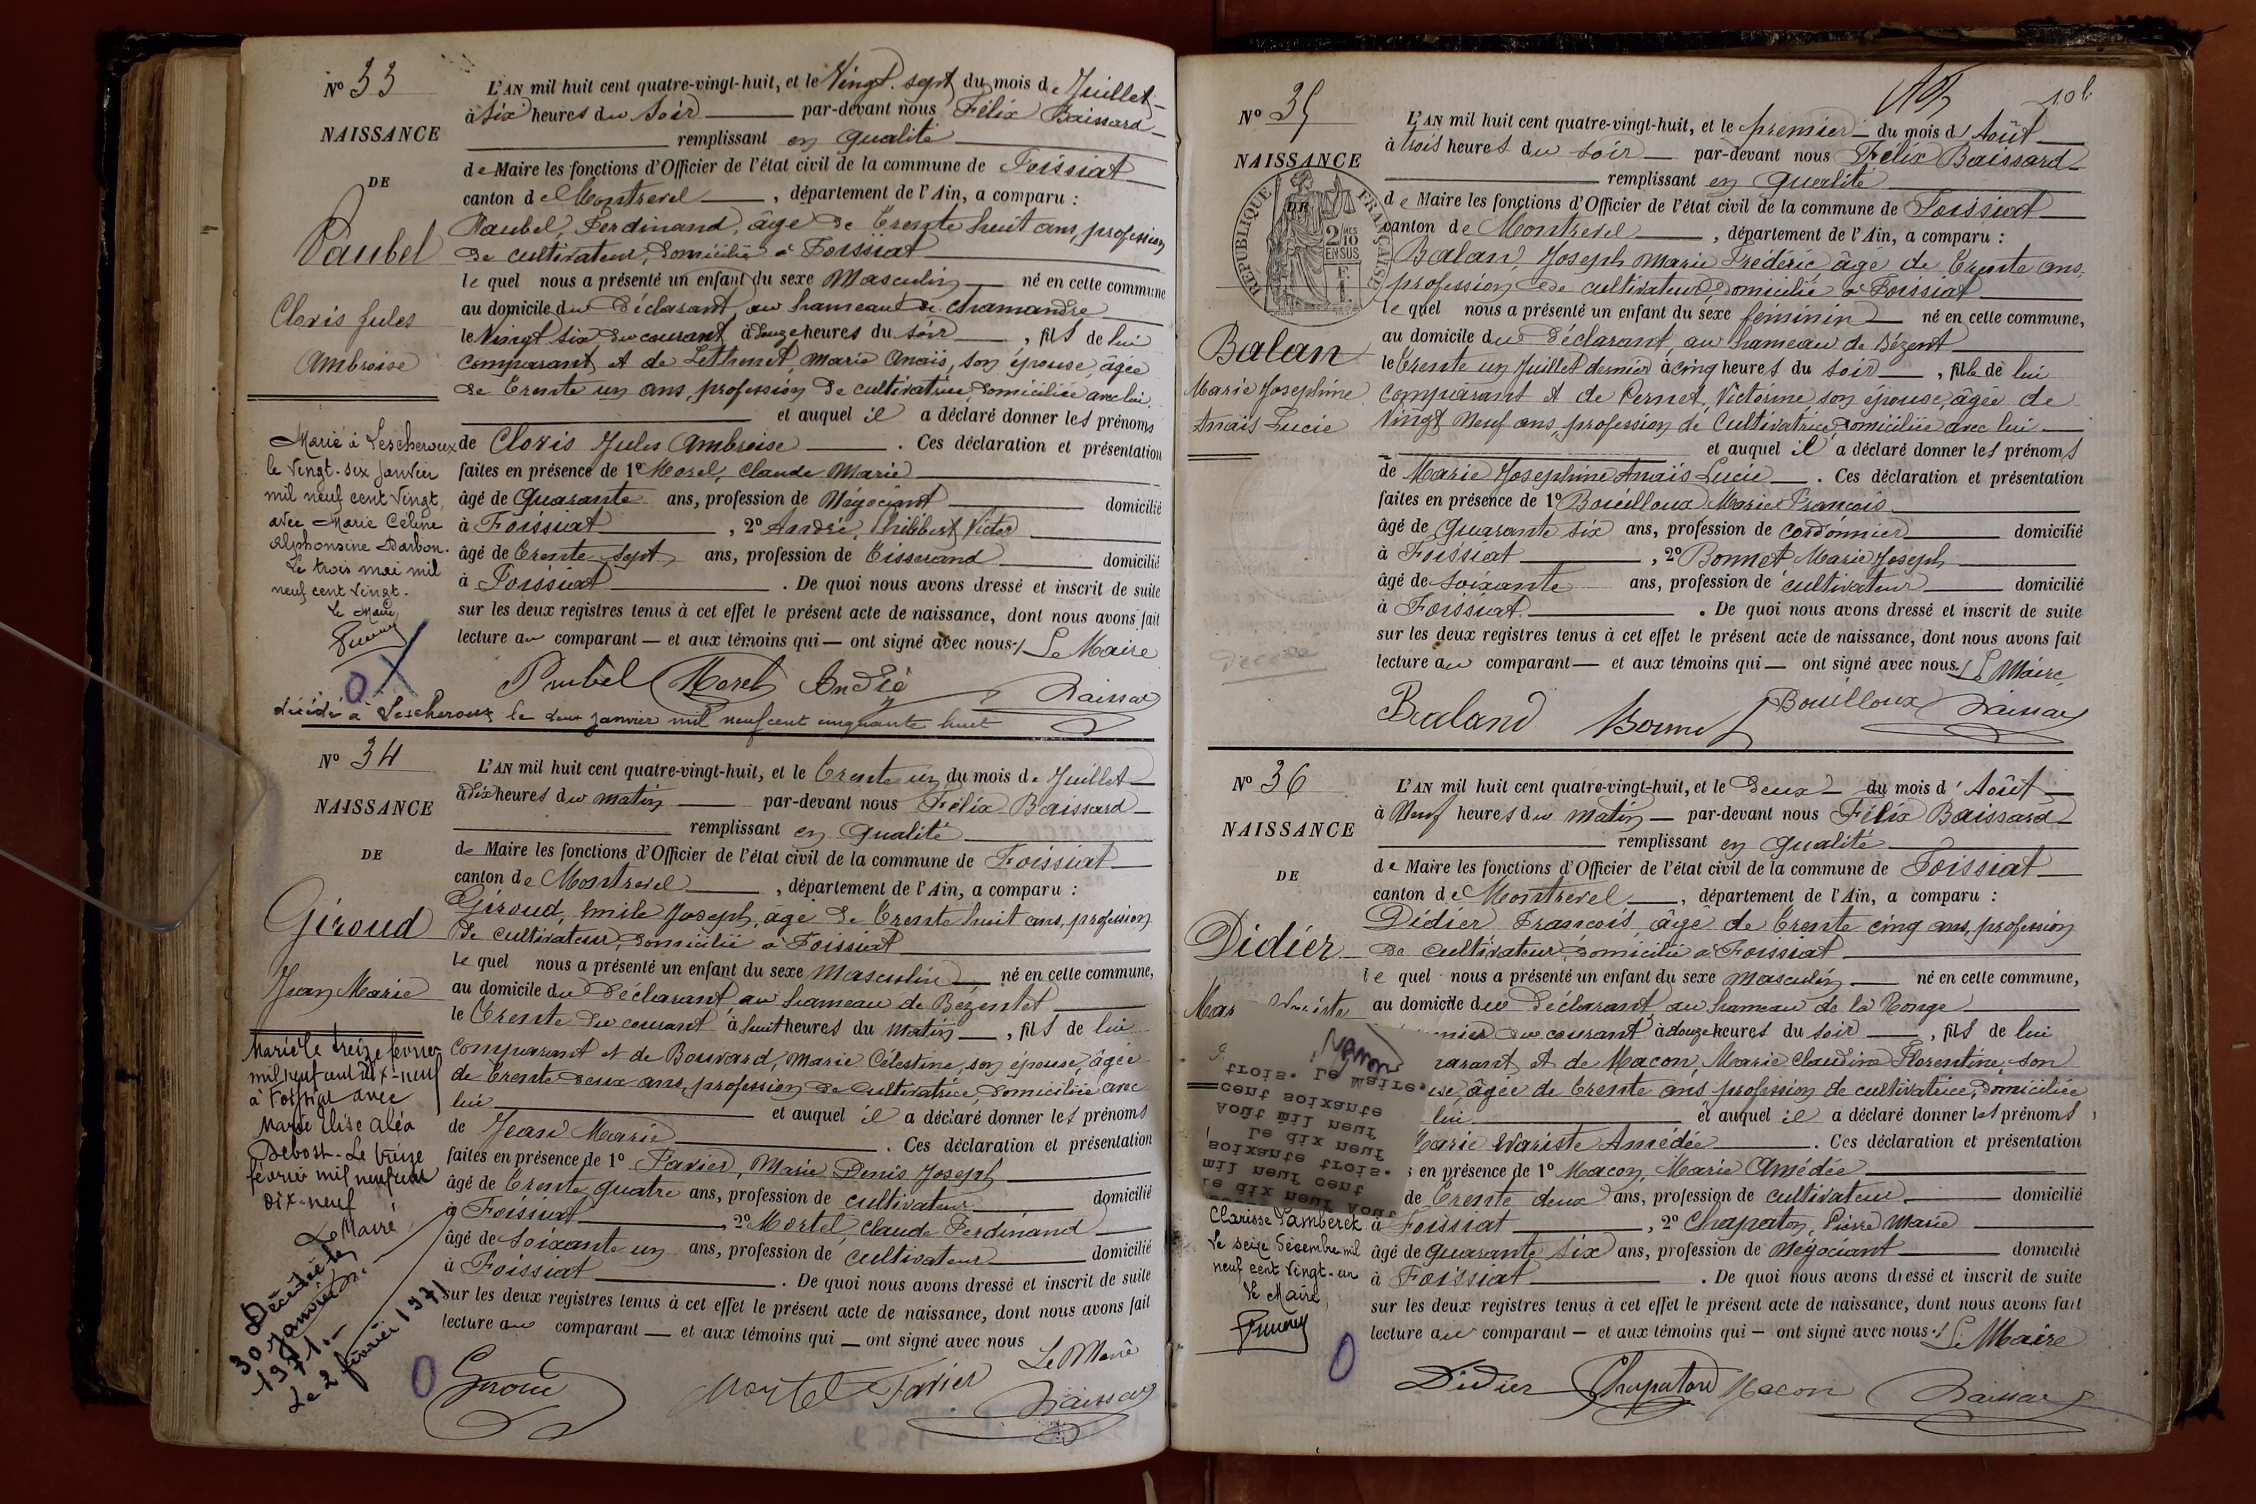 Nº 33
NAISSANCE
DE
Vaubel
Clovis Jules
Ambroise
L'AN mil huit cent quatre-vingt-huit, et le Vingt-sept du mois de Juillet
à Six heures du Soir par-devant nous Félix Baissard
remplissant en qualité
de Maire les fonctions d'Officier de l'état civil de la commune de Foissiat
canton de Montrevel, département de l'Ain, a comparu :
Vaubel, Ferdinand, âgé de trente huit ans, profession
de cultivateur, domicilié à Foissiat
le quel nous a présenté un enfant du sexe Masculin né en cette commune
au domicile du déclarant, au hameau de Chamandre
le Vingt six du courant à douze heures du soir, fils de lui
comparant et de Lethenet, Marie Anaïs, son épouse, âgée
de trente un ans, profession de cultivatrice domiciliée avec lui
et auquel il a déclaré donner les prénoms
de Clovis Jules Ambroise. Ces déclaration et présentation
faites en présence de 1º Morel, Claude Marie
âgé de Quarante ans, profession de Négociant domicilié
à Foissiat, 2º André, Philibert Victor
âgé de trente-sept ans, profession de Tisserand domicilié
à Foissiat. De quoi nous avons dressé et inscrit de suite
sur les deux registres tenus à cet effet le présent acte de naissance, dont nous avons fait
lecture au comparant et aux témoins qui ont signé avec nous. Le Maire
Morel André Baissard
Marié à Lescheroux
le Vingt-six Janvier
mil neuf cent Vingt,
avec Marie Céline
Alphonsine Darbon.
Le trois mai mil
neuf cent Vingt.
Le Maire,
décédé à Lescheroux le deux janvier mil neuf cent cinquante huit
Nº 34
NAISSANCE
DE
Giroud
Jean Marie
L'AN mil huit cent quatre-vingt-huit, et le trente un du mois de Juillet
à dix heures du matin par-devant nous Félix Baissard
remplissant en qualité
de Maire les fonctions d'Officier de l'état civil de la commune de Foissiat
canton de Montrevel, département de l'Ain, a comparu :
Giroud, Emile Joseph, âgé de trente huit ans, profession
de cultivateur, domicilié à Foissiat
le quel nous a présenté un enfant du sexe masculin né en cette commune,
au domicile du déclarant, au hameau de Bézentet
le trente du courant à huit heures du matin, fils de lui
comparant et de Bouvard, Marie Célestine, son épouse, âgée
de trente deux ans, profession de cultivatrice, domiciliée avec
lui et auquel il a déclaré donner les prénoms
de Jean Marie. Ces déclaration et présentation
faites en présence de 1º Favier, Marie Denis Joseph
âgé de trente quatre ans, profession de cultivateur domicilié
à Foissiat, 2º Mortel, Claude Ferdinand
âgé de soixante un ans, profession de cultivateur domicilié
à Foissiat. De quoi nous avons dressé et inscrit de suite
sur les deux registres tenus à cet effet le présent acte de naissance, dont nous avons fait
lecture au comparant et aux témoins qui ont signé avec nous
Le Maire
Giroud Mortel Favier Baissard
Marié le treize février
mil neuf cent dix-neuf
à Foissiat avec
Marie Elise Aléa
Debost. Le treize
février mil neuf cent
dix-neuf
Le Maire
Décédé le
30 janvier
1971.
Le 2 février 1971
Nº 35
NAISSANCE
DE
RÉPUBLIQUE FRANÇAISE
2/10 EN SUS
Balan
Marie Josephine
Anaïs Lucie
L'AN mil huit cent quatre-vingt-huit, et le premier du mois d'Août
à trois heures du soir par-devant nous Félix Baissard
remplissant en qualité
de Maire les fonctions d'Officier de l'état civil de la commune de Foissiat
canton de Montrevel, département de l'Ain, a comparu :
Balan, Joseph Marie Frédéric, âgé de trente ans,
profession de cultivateur, domicilié à Foissiat
le quel nous a présenté un enfant du sexe féminin né en cette commune,
au domicile du déclarant au hameau de Bézent
le trente un Juillet dernier à cinq heures du soir, fille de lui
comparant et de Pernet, Victorine son épouse, âgée de
vingt neuf ans, profession de cultivatrice domiciliée avec lui
et auquel il a déclaré donner les prénoms
de Marie Josephine Anaïs Lucie. Ces déclaration et présentation
faites en présence de 1º Bouilloux Marie François
âgé de quarante six ans, profession de cordonnier domicilié
à Foissiat, 2º Bonnet Marie Joseph
âgé de soixante ans, profession de cultivateur domicilié
à Foissiat. De quoi nous avons dressé et inscrit de suite
sur les deux registres tenus à cet effet le présent acte de naissance, dont nous avons fait
lecture au comparant et aux témoins qui ont signé avec nous. Le Maire,
Baland Bonnet Bouilloux Baissard
Nº 36
NAISSANCE
DE
Didier
L'AN mil huit cent quatre-vingt-huit, et le deux du mois d'Août
à Neuf heures du matin par-devant nous Félix Baissard
remplissant en qualité
de Maire les fonctions d'Officier de l'état civil de la commune de Foissiat
canton de Montrevel, département de l'Ain, a comparu :
Didier François, âgé de trente cinq ans, profession
de cultivateur, domicilié à Foissiat
le quel nous a présenté un enfant du sexe masculin né en cette commune,
au domicile du déclarant au hameau de la Ronge
du courant à douze heures du soir, fils de lui
et de Macon, Marie Claudine Florentine, son
âgée de trente ans profession de cultivatrice, domiciliée
lui et auquel il a déclaré donner les prénoms
Marie Evariste Amédée. Ces déclaration et présentation
en présence de 1º Macon, Marie Amédée
de trente deux ans, profession de cultivateur domicilié
à Foissiat, 2º Chapaton, Pierre Marie
âgé de quarante six ans, profession de Négociant domicilié
à Foissiat. De quoi nous avons dressé et inscrit de suite
sur les deux registres tenus à cet effet le présent acte de naissance, dont nous avons fait
lecture au comparant et aux témoins qui ont signé avec nous. Le Maire
Didier Chapaton Macon Baissard
le dix neuf Août
mil neuf cent
soixante trois.
Le dix neuf
Août mil neuf
cent soixante
trois. Le Maire.
Clarisse Lamberet
Le seize Décembre mil
neuf cent Vingt-un
Le Maire,